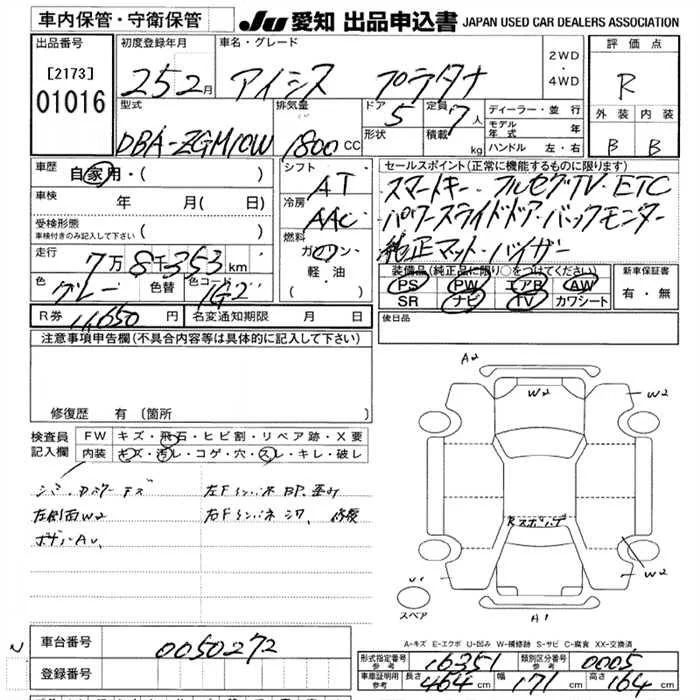 車内保管・守衛保管
JU 愛知 出品申込書 JAPAN USED CAR DEALERS ASSOCIATION
出品番号
[2173]
01016
初度登録年月
25 2 月
車名・グレード
アイシス プラタナ
2WD
・
4WD
評価点
R
外装 内装
B B
型式
DBA-ZGM10W
排気量
1800 CC
ドア
5
形状
定員
7人
積載 kg
ディーラー・並行
モデル年式 年
ハンドル 左・右
車歴
自家用・( )
車検 年 月( 日)
受検形態
車検付きのみ記入して下さい ( )
走行
7万8千353km
色
グレー
色替
色コード
1G2
シフト
AT
冷房
AAC
燃料
ガソリン
軽油
( ・ )
セールスポイント(正常に機能するものに限ります)
スマートキー・フルセグTV・ETC
パワースライドドア・バックモニター
純正マット・バイザー
装備品(純正品に限り○をつけてください)
PS PW エアB AW
SR ナビ TV カワシート
新車保証書
有・無
R券 11,650 円 名変通知期限 月 日
後日品
注意事項申告欄(不具合内容等は具体的に記入して下さい)
修復歴 有(箇所
検査員記入欄
FW キズ・飛石・ヒビ割・リペア跡・X要
内装 キズ・汚レ・コゲ・穴・スレ・キレ・破レ
左側面W2
A2
W2
W2
W2
A1
スペア
A-キズ E-エクボ U-凹み W-補修跡 S-サビ C-腐食 XX-交換済
車台番号 0050272
登録番号
形式指定番号 参考 16351
類別区分番号 参考 0005
車庫証明用 参考 長さ 464 cm 幅 171 cm 高さ 164 cm